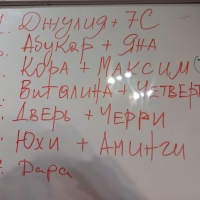 Джулия + 7С
Абукар + Яна
Кора + Максим
Виталина + Четверг
Дверь + Черри
Юхи + Аминги
Дара